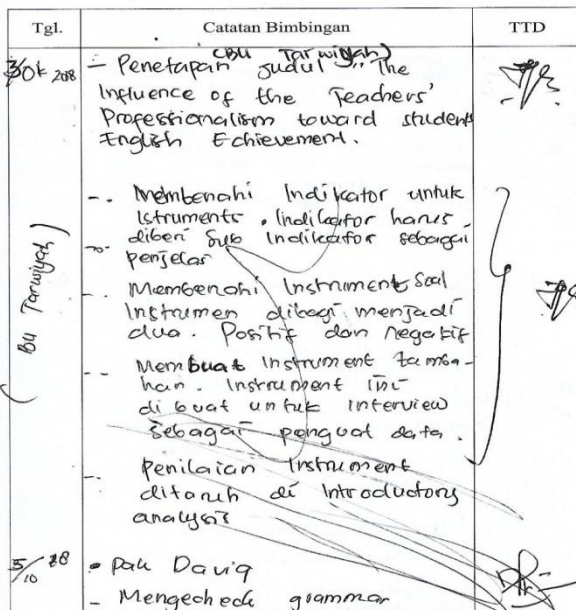 Tgl. Catatan Bimbingan TTD
(BU Tarwiyah)
3/Ok 2018 - Penetapan Judul "The
Influence of the Teachers'
Professionalism toward student
English Echievement.
(BU Tarwiyah)
- Membenahi Indikator untuk
Istruments. Indikator harus
diberi Sub Indikator sebagai
penjelas
- Membenahi Instrument Soal
Instrumen dibagi menjadi
dua. Positif dan negatif
- Membuat Instrument tamba-
han. Instrument ini
di buat untuk interview
sebagai penguat data.
- Penilaian Instrument
ditaruh di Introductory
analysis
5/10 18 • Pak Daviq
- Mengecheck grammar